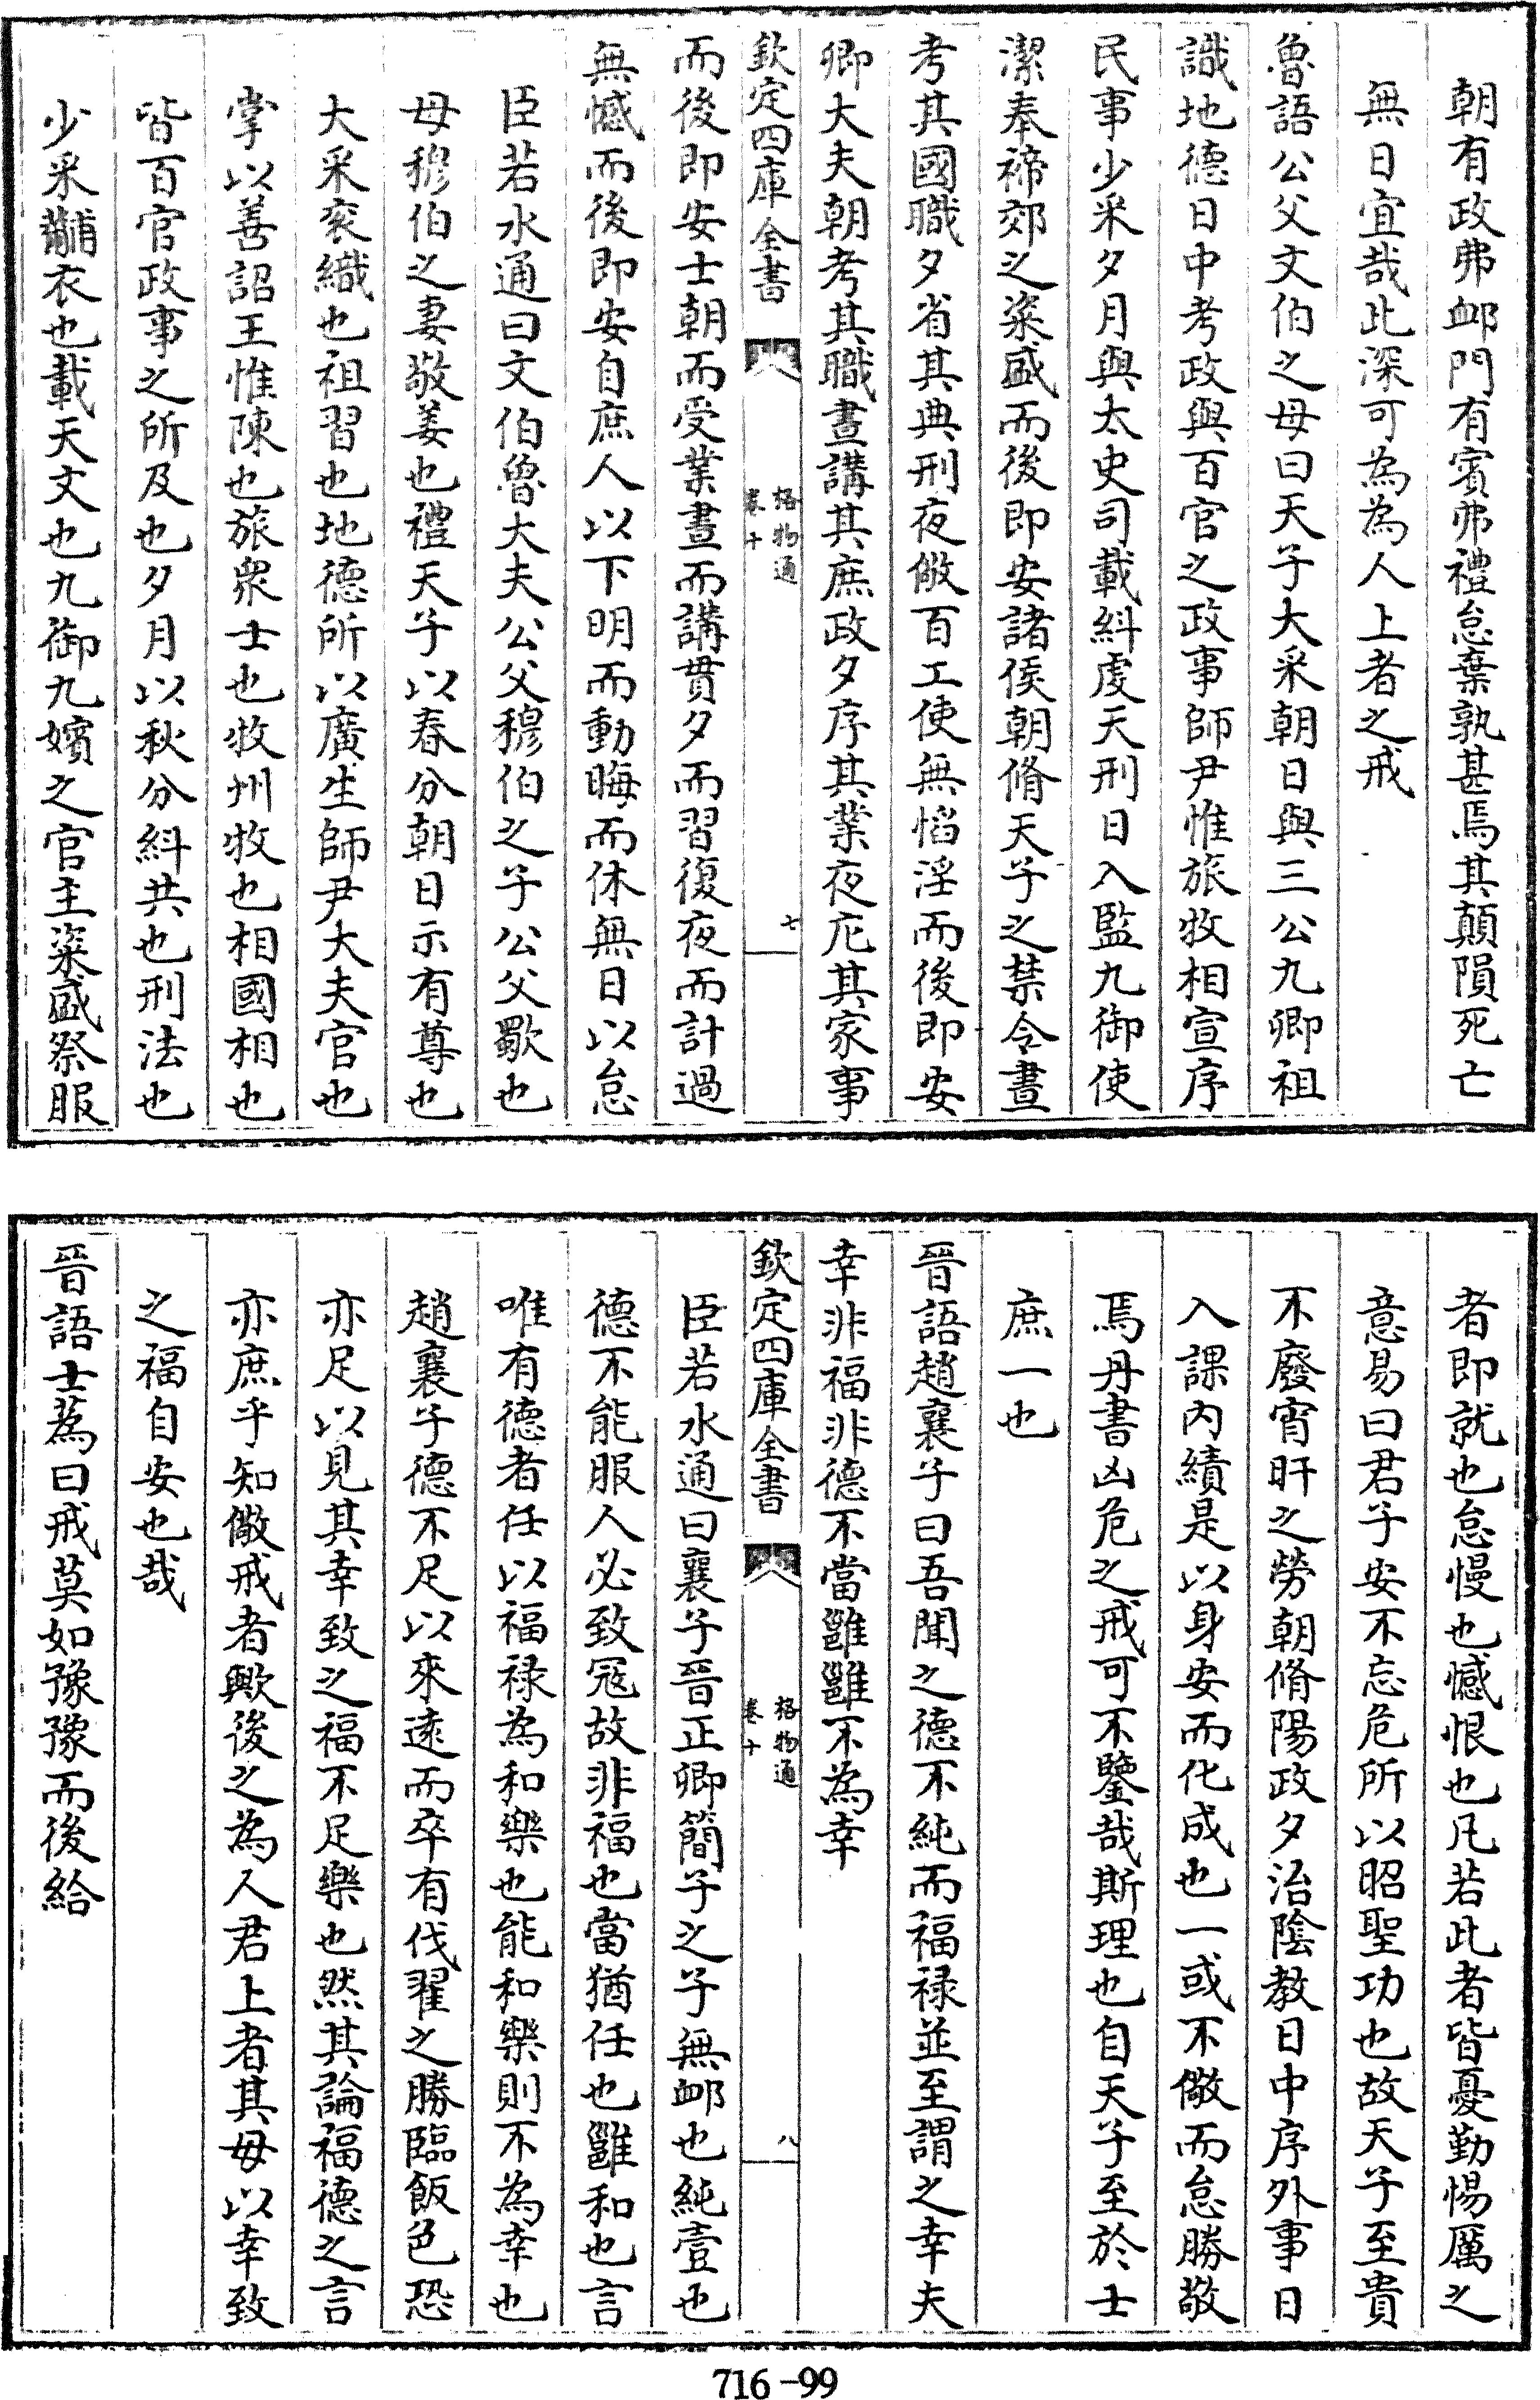 朝有政弗䘏門有賓弗禮怠棄孰甚焉其顛隕死亡
無日宜哉此深可為為人上者之戒
魯語公父文伯之母曰天子大采朝日與三公九卿祖
識地德日中考政與百官之政事師尹惟旅牧相宣序
民事少采夕月與太史司載糾虔天刑日入監九御使
潔奉禘郊之粢盛而後即安諸侯朝脩天子之禁令晝
考其國職夕省其典刑夜儆百工使無慆淫而後即安
卿大夫朝考其職晝講其庶政夕序其業夜庀其家事
欽定四庫全書
格物通
卷十
七
而後即安士朝而受業晝而講貫夕而習復夜而計過
無憾而後即安自庶人以下明而動晦而休無日以怠
臣若水通曰文伯魯大夫公父穆伯之子公父歜也
母穆伯之妻敬姜也禮天子以春分朝日示有尊也
大采衮織也祖習也地德所以廣生師尹大夫官也
掌以善詔王惟陳也旅衆士也牧州牧也相國相也
皆百官政事之所及也夕月以秋分糾共也刑法也
少采黼衣也載天文也九御九嬪之官主粢盛祭服
者即就也怠慢也憾恨也凡若此者皆憂勤惕厲之
意易曰君子安不忘危所以昭聖功也故天子至貴
不廢宵旰之勞朝脩陽政夕治陰教日中序外事日
入課内績是以身安而化成也一或不儆而怠勝敬
焉丹書凶危之戒可不鑒哉斯理也自天子至於士
庶一也
晉語趙襄子曰吾聞之德不純而福禄並至謂之幸夫
幸非福非德不當雝雝不為幸
欽定四庫全書
格物通
卷十
八
臣若水通曰襄子晉正卿簡子之子無䘏也純壹也
德不能服人必致冦故非福也當猶任也雝和也言
唯有德者任以福禄為和樂也能和樂則不為幸也
趙襄子德不足以來遠而卒有伐翟之勝臨飯色恐
亦足以見其幸致之福不足樂也然其論福德之言
亦庶乎知儆戒者歟後之為人君上者其毋以幸致
之福自安也哉
晉語士蒍曰戒莫如豫豫而後給
716-99